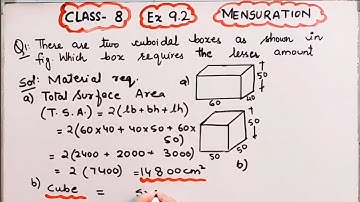 CLASS- 8 Ex 9.2 MENSURATION
Q1: There are two cuboidal boxes as shown in
fig. Which box requires the lesser amount
Sol: Material req. a)
50
60 40
a) Total Surface Area
(T. S. A.) = 2(lb + bh + lh)
= 2(60x40 + 40x50 + 60x
50)
50
50
50
b)
= 2(2400 + 2000 + 3000)
= 2 (7400) = 14800 cm²
b) Cube =